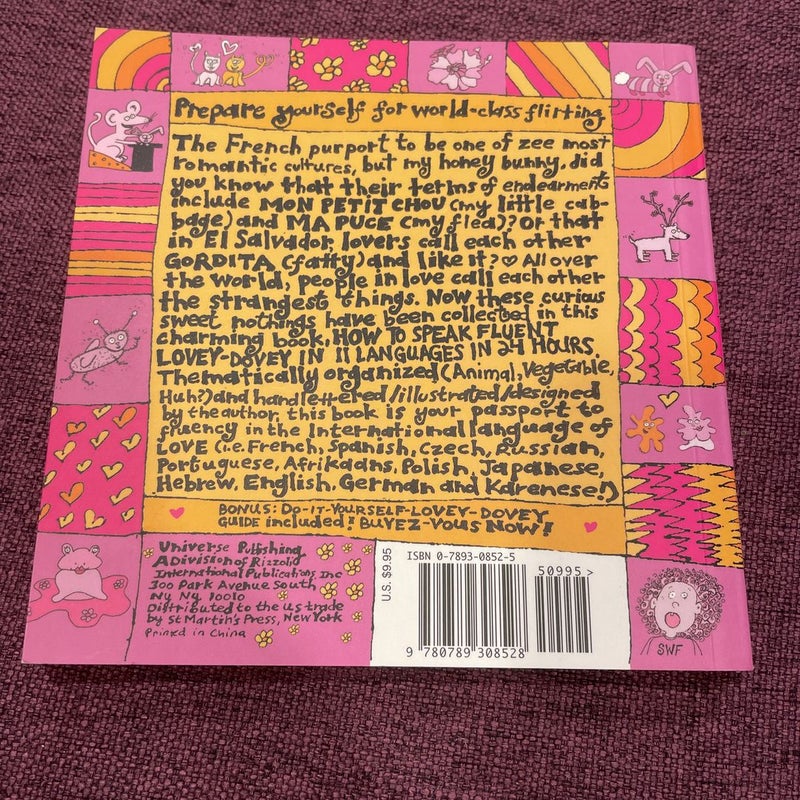 Prepare yourself for world-class flirting
The French purport to be one of zee most
romantic cultures, but my honey bunny, did
you know that their terms of endearment
include MON PETIT CHOU (my little cab-
bage) and MA PUCE (my flea)? Or that
in El Salvador, lovers call each other
GORDITA (fatty) and like it? ♡ All over
the world, people in love call each other
the strangest things. Now these curious
sweet nothings have been collected in this
charming book, HOW TO SPEAK FLUENT
LOVEY-DOVEY IN 11 LANGUAGES IN 24 HOURS.
Thematically organized (Animal, Vegetable,
Huh?) and handlettered/illustrated/designed
by the author, this book is your passport to
fluency in the International language of
LOVE (i.e. French, Spanish, Czech, Russian,
Portuguese, Afrikaans, Polish, Japanese,
Hebrew, English, German and Karenese!)
BONUS: DO-IT-YOURSELF-LOVEY-DOVEY
GUIDE included! BUYEZ-VOUS NOW!
Universe Publishing
A Division of Rizzoli
International Publications, Inc
300 Park Avenue South
NY NY 10010
Distributed to the US trade
by St Martin's Press, New York
Printed in China
U.S. $9.95
ISBN 0-7893-0852-5
50995>
9 780789 308528
SWF